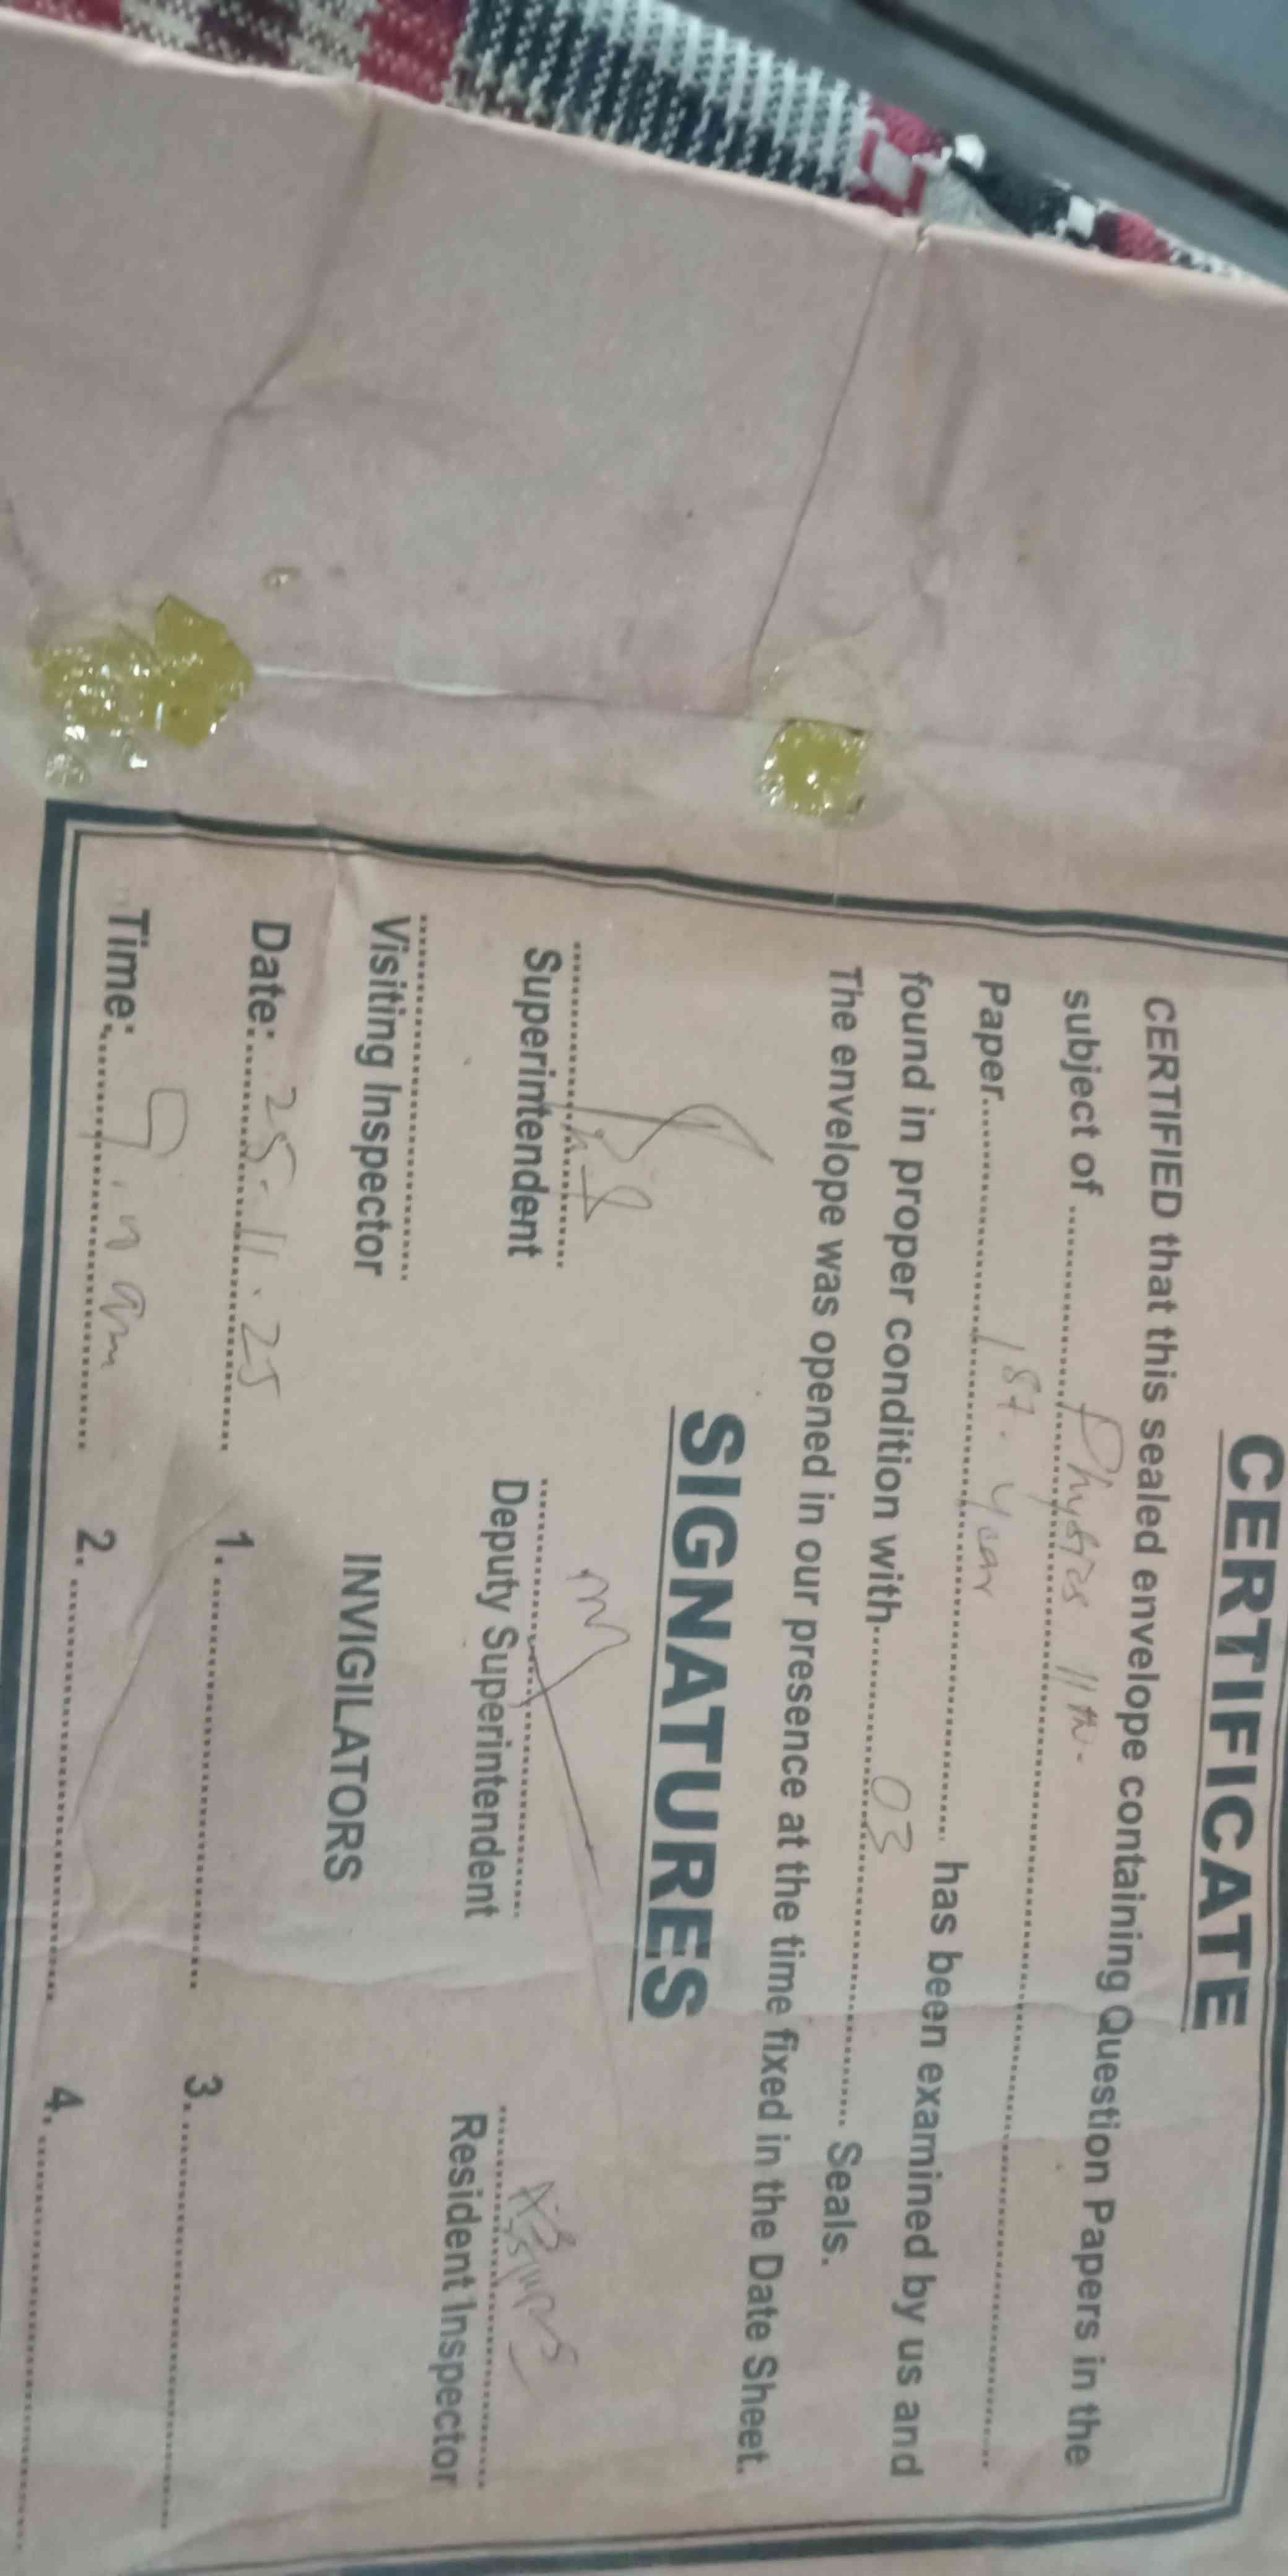 CERTIFICATE
CERTIFIED that this sealed envelope containing Question Papers in the
subject of ........ Physics 11th. ........
Paper........ 1st. year ........ has been examined by us and
found in proper condition with........ 03 ........ Seals.
The envelope was opened in our presence at the time fixed in the Date Sheet.
SIGNATURES
Superintendent Deputy Superintendent Resident Inspector
Visiting Inspector INVIGILATORS
Date: 25.11.25 1. ........ 3. ........
Time: 9. am 2. ........ 4. ........